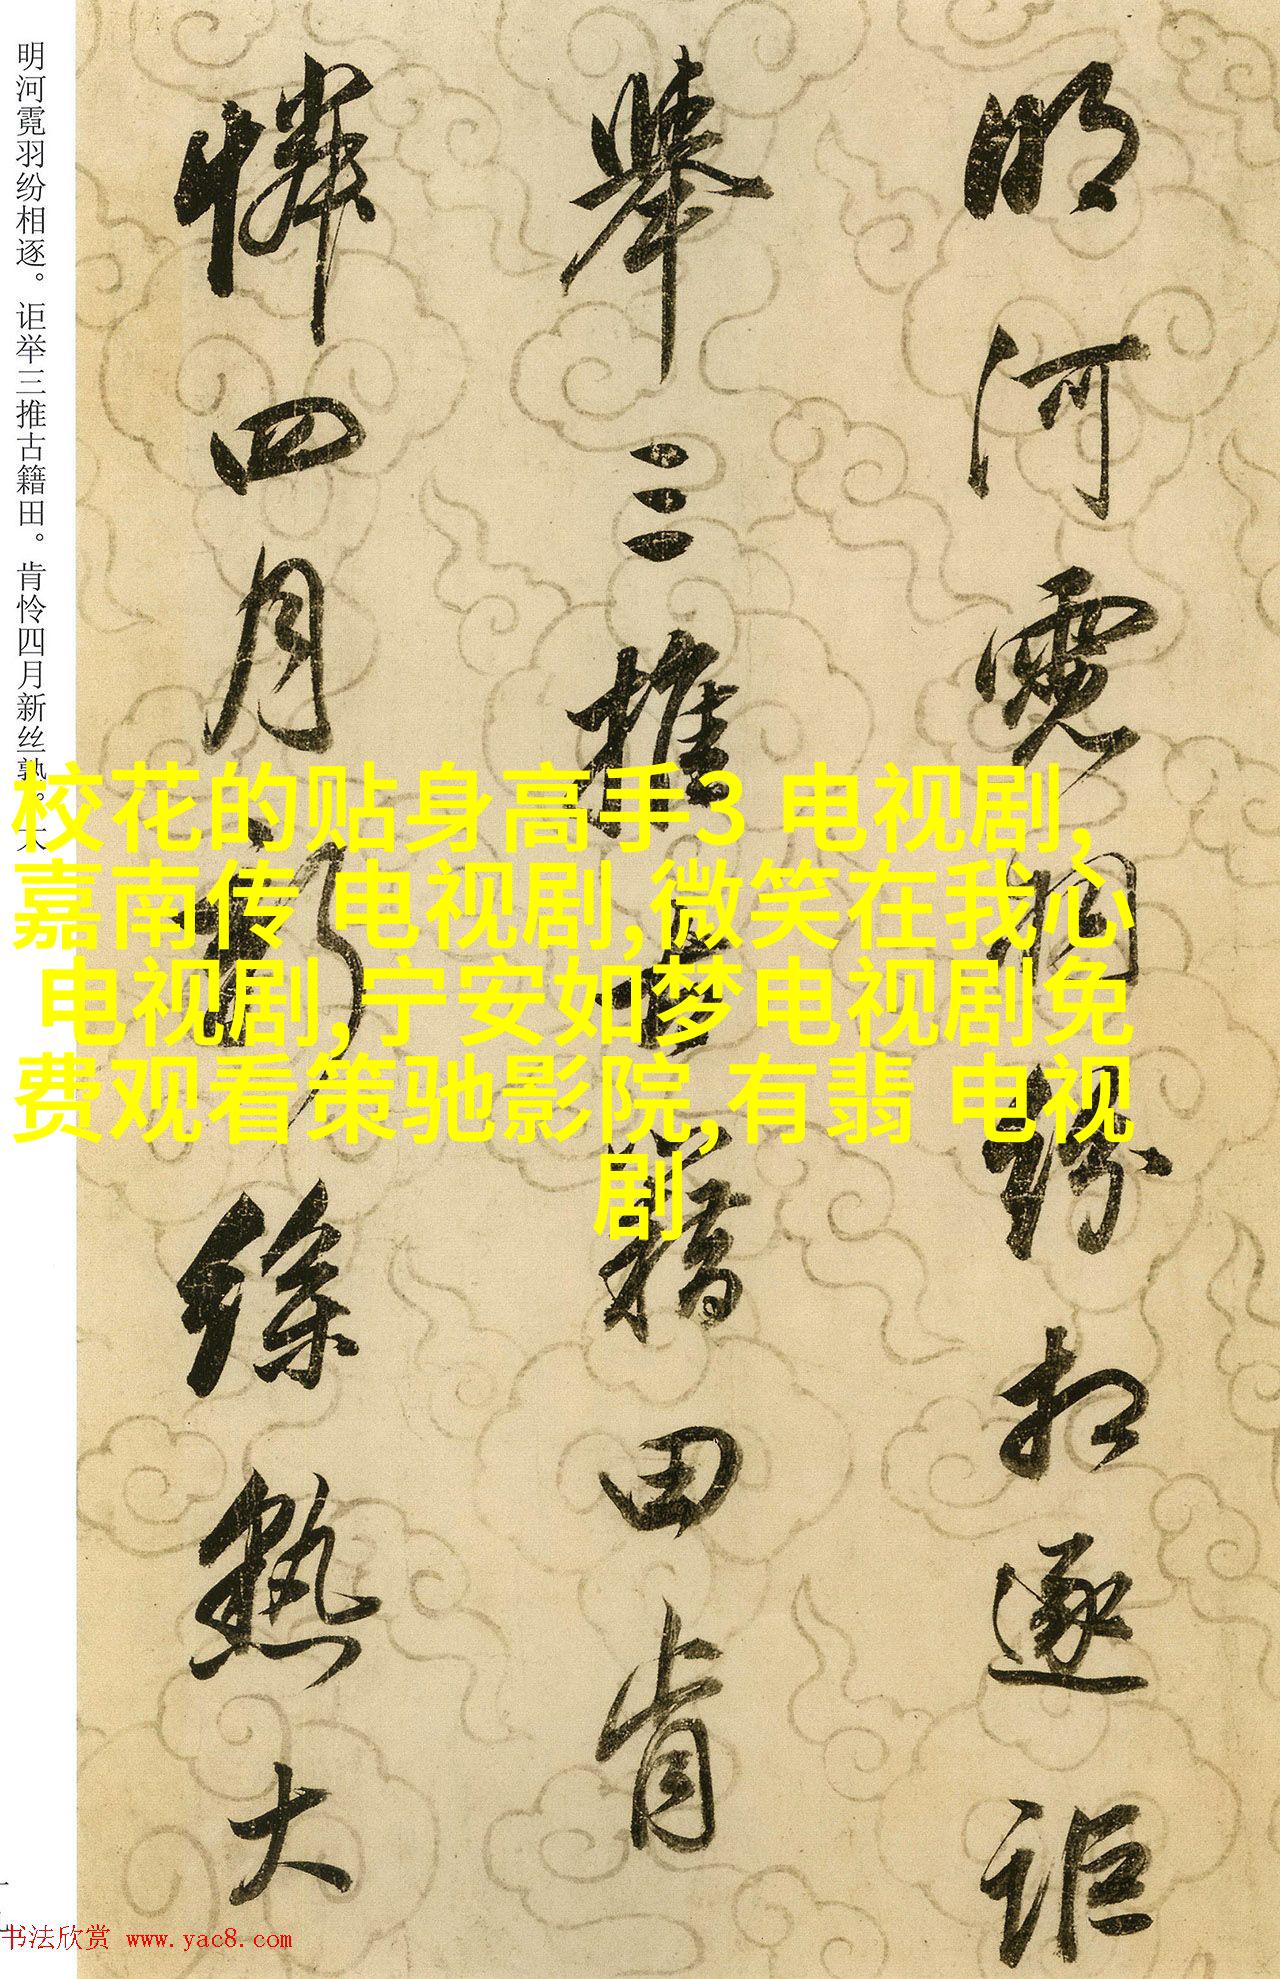 明河霓羽纷相逐。讵举三推古籍田。肯怜四月新丝熟。大
明河霓羽紛相逐詎
舉三推古籍田肯
憐四月新絲熟大
校花的贴身高手3 电视剧,
嘉南传 电视剧,微笑在我心
电视剧,宁安如梦电视剧免
费观看策驰影院,有翡 电视
剧
书法欣赏 www.yac8.com